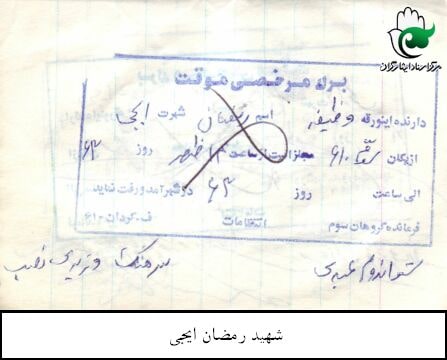 مرکز اسناد ایثارگران
برگ مرخصی موقت
دارنده اینورقه وظیفه اسم رمضان شهرت ایجی
از یگان مجاز است از ساعت ۱۴ ظهر روز ۶۳
الی ساعت روز ۶۳ در شهر آمد و رفت نماید
فرمانده گروهان سوم انتظامات ف.گردان ۶۱۰
ستواندوم
سرهنگ
شهید رمضان ایجی